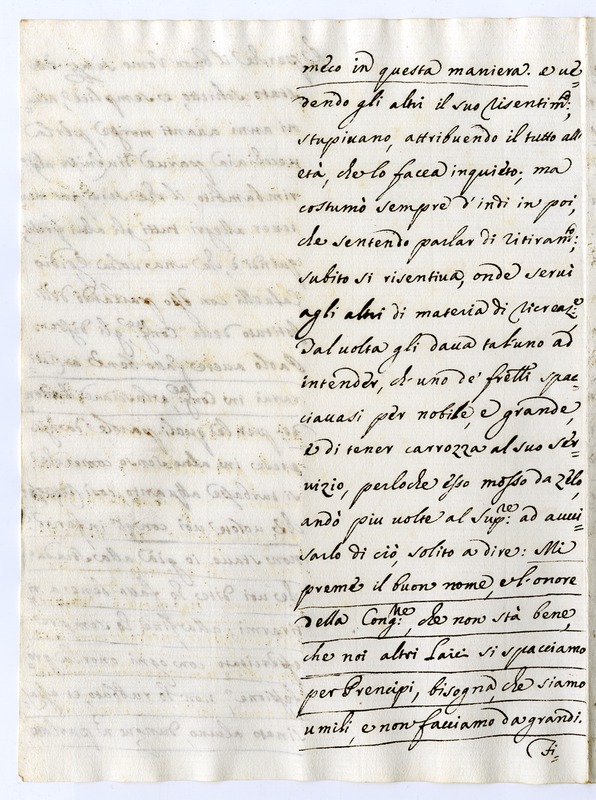 meco in questa maniera. e ve=
dendo gli altri il suo risentimto;
stupivano, attribuendo il tutto all'
età, che lo facea inquieto; ma
costumò sempre d'indi in poi,
che sentendo parlar di ritiramto;
subito si risentiva, onde servì
agli altri di materia di ricreaze:
Tal volta gli dava taluno ad
intender, ch'uno de' frelli spac=
ciavasi per nobile, e grande,
e di tener carrozza al suo ser=
vizio, perloche esso mosso da zelo,
andò piu volte al Supre: ad avvi=
sarlo di ciò, solito a dire: Mi
preme il buon nome, e l'onore
della Congne, che non stà bene,
che noi altri Laici si spacciamo
per Prencipi, bisogna, che siamo
umili, e non facciamo da grandi.
Fi=